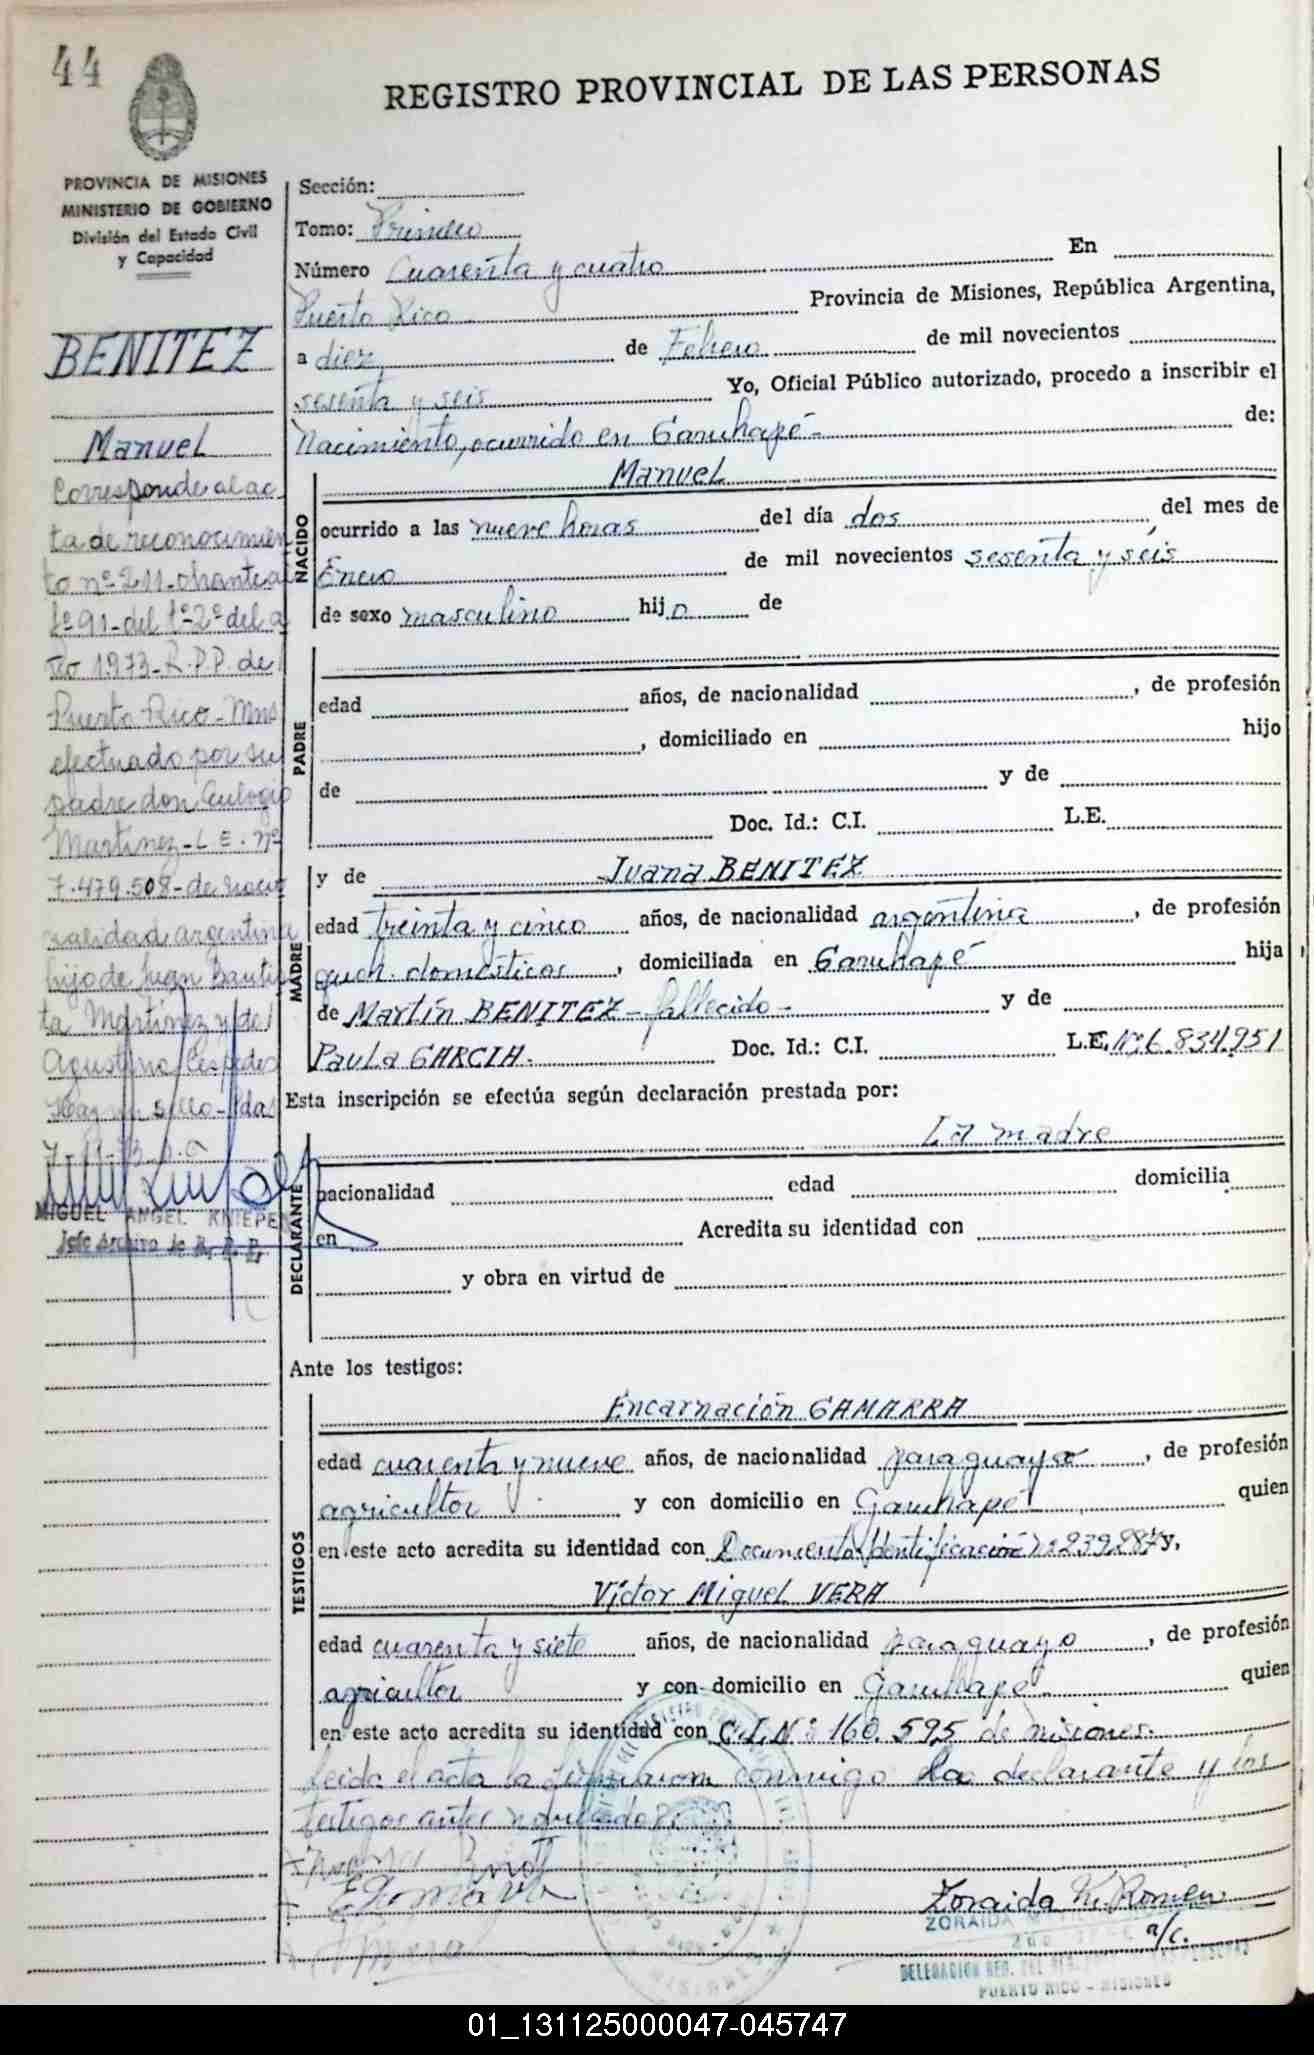 44
REGISTRO PROVINCIAL DE LAS PERSONAS
PROVINCIA DE MISIONES
MINISTERIO DE GOBIERNO
División del Estado Civil
y Capacidad
BENITEZ
Manuel
Corresponde al ac
ta de reconocimien
to nº 211- obrante a
fº 91- del tº 2º del a
ño 1973- R.P.P. de
Puerto Rico- Mns
efectuado por su
padre don Eulogio
Martinez- L.E. nº
7.479.508- de nacio
nalidad argentina
hijo de Juan Bautis
ta Martinez y de
Agustina Cespedes
MIGUEL ANGEL KNIEPEN
Jefe Archivo de R. P. P.
Sección:
Tomo: Primero
Número Cuarenta y cuatro En
Puerto Rico Provincia de Misiones, República Argentina,
a diez de Febrero de mil novecientos
sesenta y seis Yo, Oficial Público autorizado, procedo a inscribir el
Nacimiento, ocurrido en Garuhapé- de:
NACIDO
Manuel
ocurrido a las nueve horas del día dos del mes de
Enero de mil novecientos sesenta y seis
de sexo masculino hijo de
PADRE
edad años, de nacionalidad , de profesión
, domiciliado en hijo
de y de
Doc. Id.: C.I. L.E.
MADRE
y de Juana BENITEZ
edad treinta y cinco años, de nacionalidad argentina , de profesión
queh. domésticos , domiciliada en Garuhapé hija
de Martín BENITEZ - fallecido - y de
Paula GARCIA. Doc. Id.: C.I. L.E. Nº 6.834.951
Esta inscripción se efectúa según declaración prestada por:
La madre
DECLARANTE
nacionalidad edad domicilia
en Acredita su identidad con
y obra en virtud de
Ante los testigos:
TESTIGOS
Encarnación GAMARRA
edad cuarenta y nueve años, de nacionalidad paraguaya , de profesión
agricultor y con domicilio en Garuhapé quien
en este acto acredita su identidad con Documento Identificación Nº 239287 y,
Víctor Miguel VERA
edad cuarenta y siete años, de nacionalidad paraguayo , de profesión
agricultor y con domicilio en Garuhapé quien
en este acto acredita su identidad con C.I. Nº 160.595 de Misiones.
Leida el acta la firmaron conmigo la declarante y los
testigos antes nombrados.
Zoraida M. Romero
ZORAIDA
a/c.
PUERTO RICO - MISIONES
01_131125000047-045747